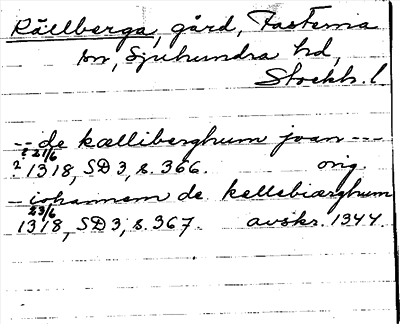 Källberga, gård, Fasterna
sn, Sjuhundra hd,
Stockh. l
-- de kælliberghum joan ---
? 21/6
? 1318, SD 3, s. 366. orig.
- iohannem de kellebiærghum
23/6
1318, SD 3, s. 367. avskr. 1344.